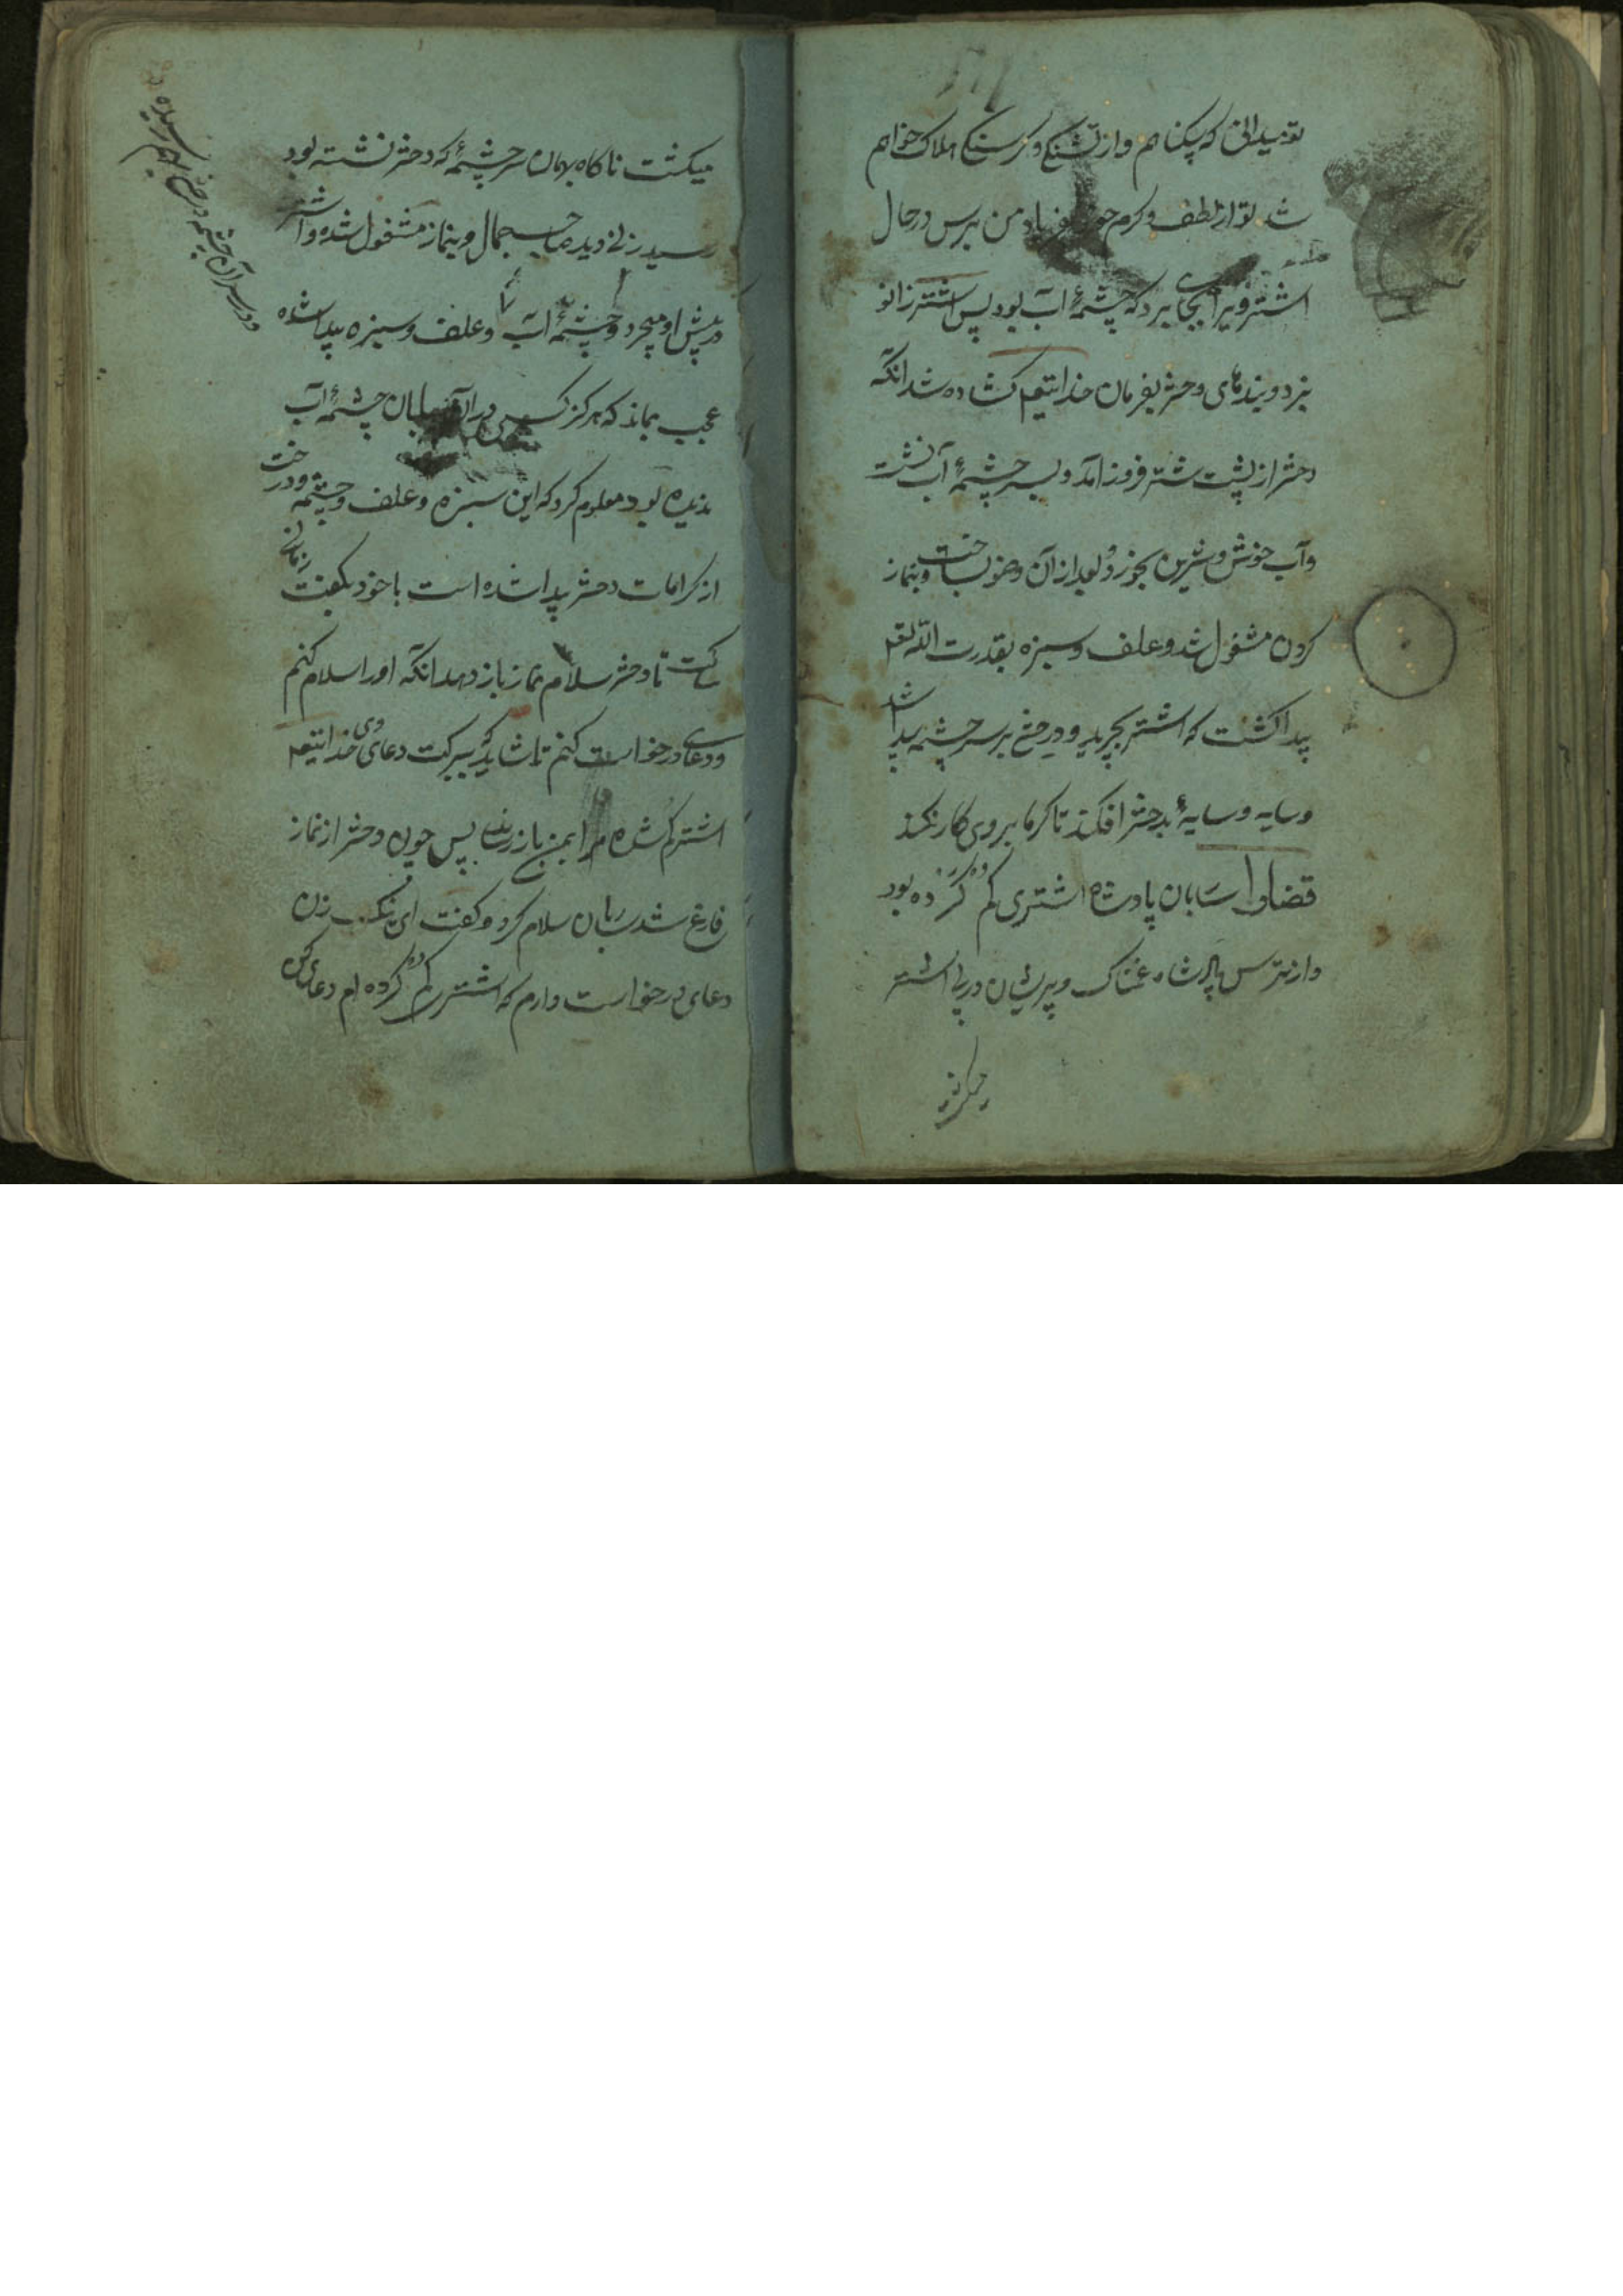 تو میدانی که بیکناهم و از تشنکی و کرسنکی هلاک خواهم
شد تو از لطف و کرم خود فریاد من برس در حال
اشتر ویرا بجای برد که چشمهٔ آب بود پس اشتر زانو
بزد و بندهای دختر بفرمان خدایتعم کشاده شد انکه
دختر از پشت شتر فروز آمد و بسر چشمهٔ آب نشست
و آب خوش و شیرین بخورد و بعد از آن وضو ساخت و بنماز
کردن مشغول شد و علف و سبزه بقدرت الله تعم
پیدا کشت که اشتر بچرید و درختی بر سر چشمه پیدا شد
و سایه و سایهٔ بدختر افکند تا کرما بروی کار نکند
قضا را ساربان پادشاه اشتری کم کرده بود
و از ترس پادشاه غمناک و پریشان در پی اشتر
میکشت
میکشت ناکاه بهمان سر چشمهٔ که دختر نشسته بود
رسید زنی دید صاحب جمال و بنماز مشغول شده و اشتر
در پیش او میچرد و چشمهٔ آب و علف و سبزه پیدا شده
عجب بماند که هرکز کسی در آن بیابان چشمهٔ آب
ندیده بود معلوم کرد که این سبزه و علف و چشمه و درخت
از کرامات دختر پیدا شده است با خود بکفت زمانی
ساکت تا دختر سلام نماز باز دهد انکه او را سلام کنم
و دعای درخواست کنم تا شاید که ببرکت دعای وی خدایتعم
اشتر کم شده مرا بمن باز رساند پس چون دختر از نماز
فارغ شد ساربان سلام کرد و کفت ای نیک زن
دعای درخواست دارم که اشتر کم کرده ام دعای کن
و بر سر آن چشمه درختی